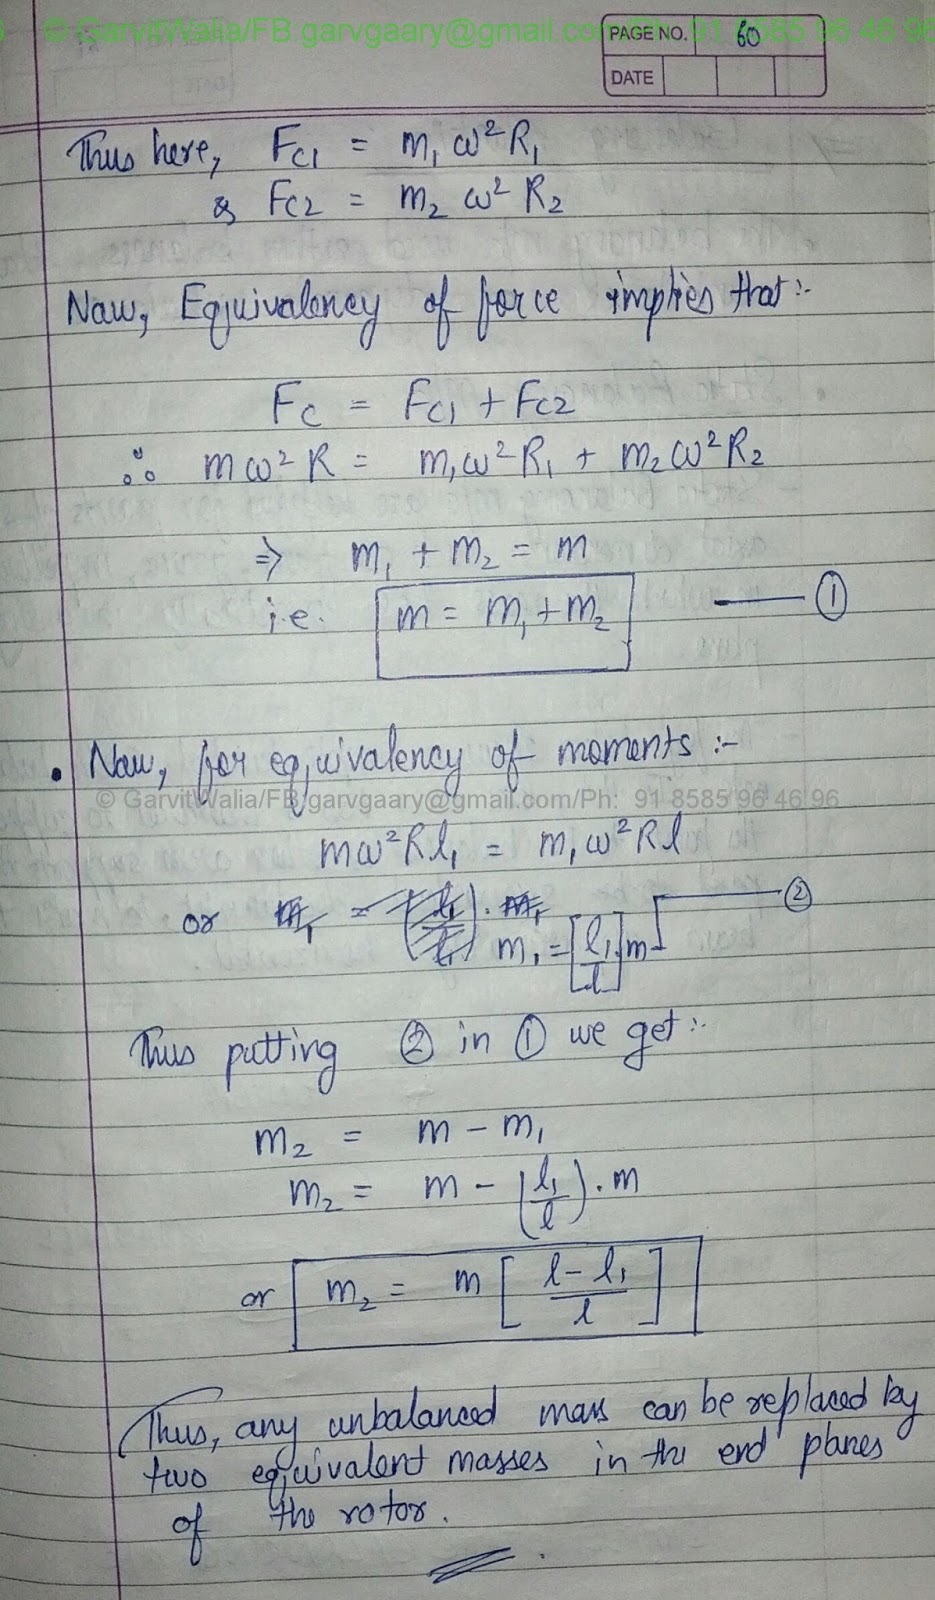 © GarvitWalia/FB.garvgaary@gmail.com/Ph: 91 8585 96 46 96
PAGE NO. 60
DATE
Thus here, Fc1 = m₁ ω² R₁
& Fc2 = m₂ ω² R₂
Now, Equivalency of force implies that :-
Fc = Fc1 + Fc2
∴ mω²R = m₁ω²R₁ + m₂ω²R₂
⇒ m₁ + m₂ = m
i.e. m = m₁ + m₂ —— ①
• Now, for equivalency of moments :-
© GarvitWalia/FB.garvgaary@gmail.com/Ph: 91 8585 96 46 96
mω²Rl₁ = m₁ω²Rl
or m₁ = [l₁/l] m —— ②
Thus putting ② in ① we get :-
m₂ = m - m₁
m₂ = m - (l₁/l) . m
or m₂ = m [l - l₁ / l]
Thus, any unbalanced mass can be replaced by
two equivalent masses in the end planes
of the rotor.